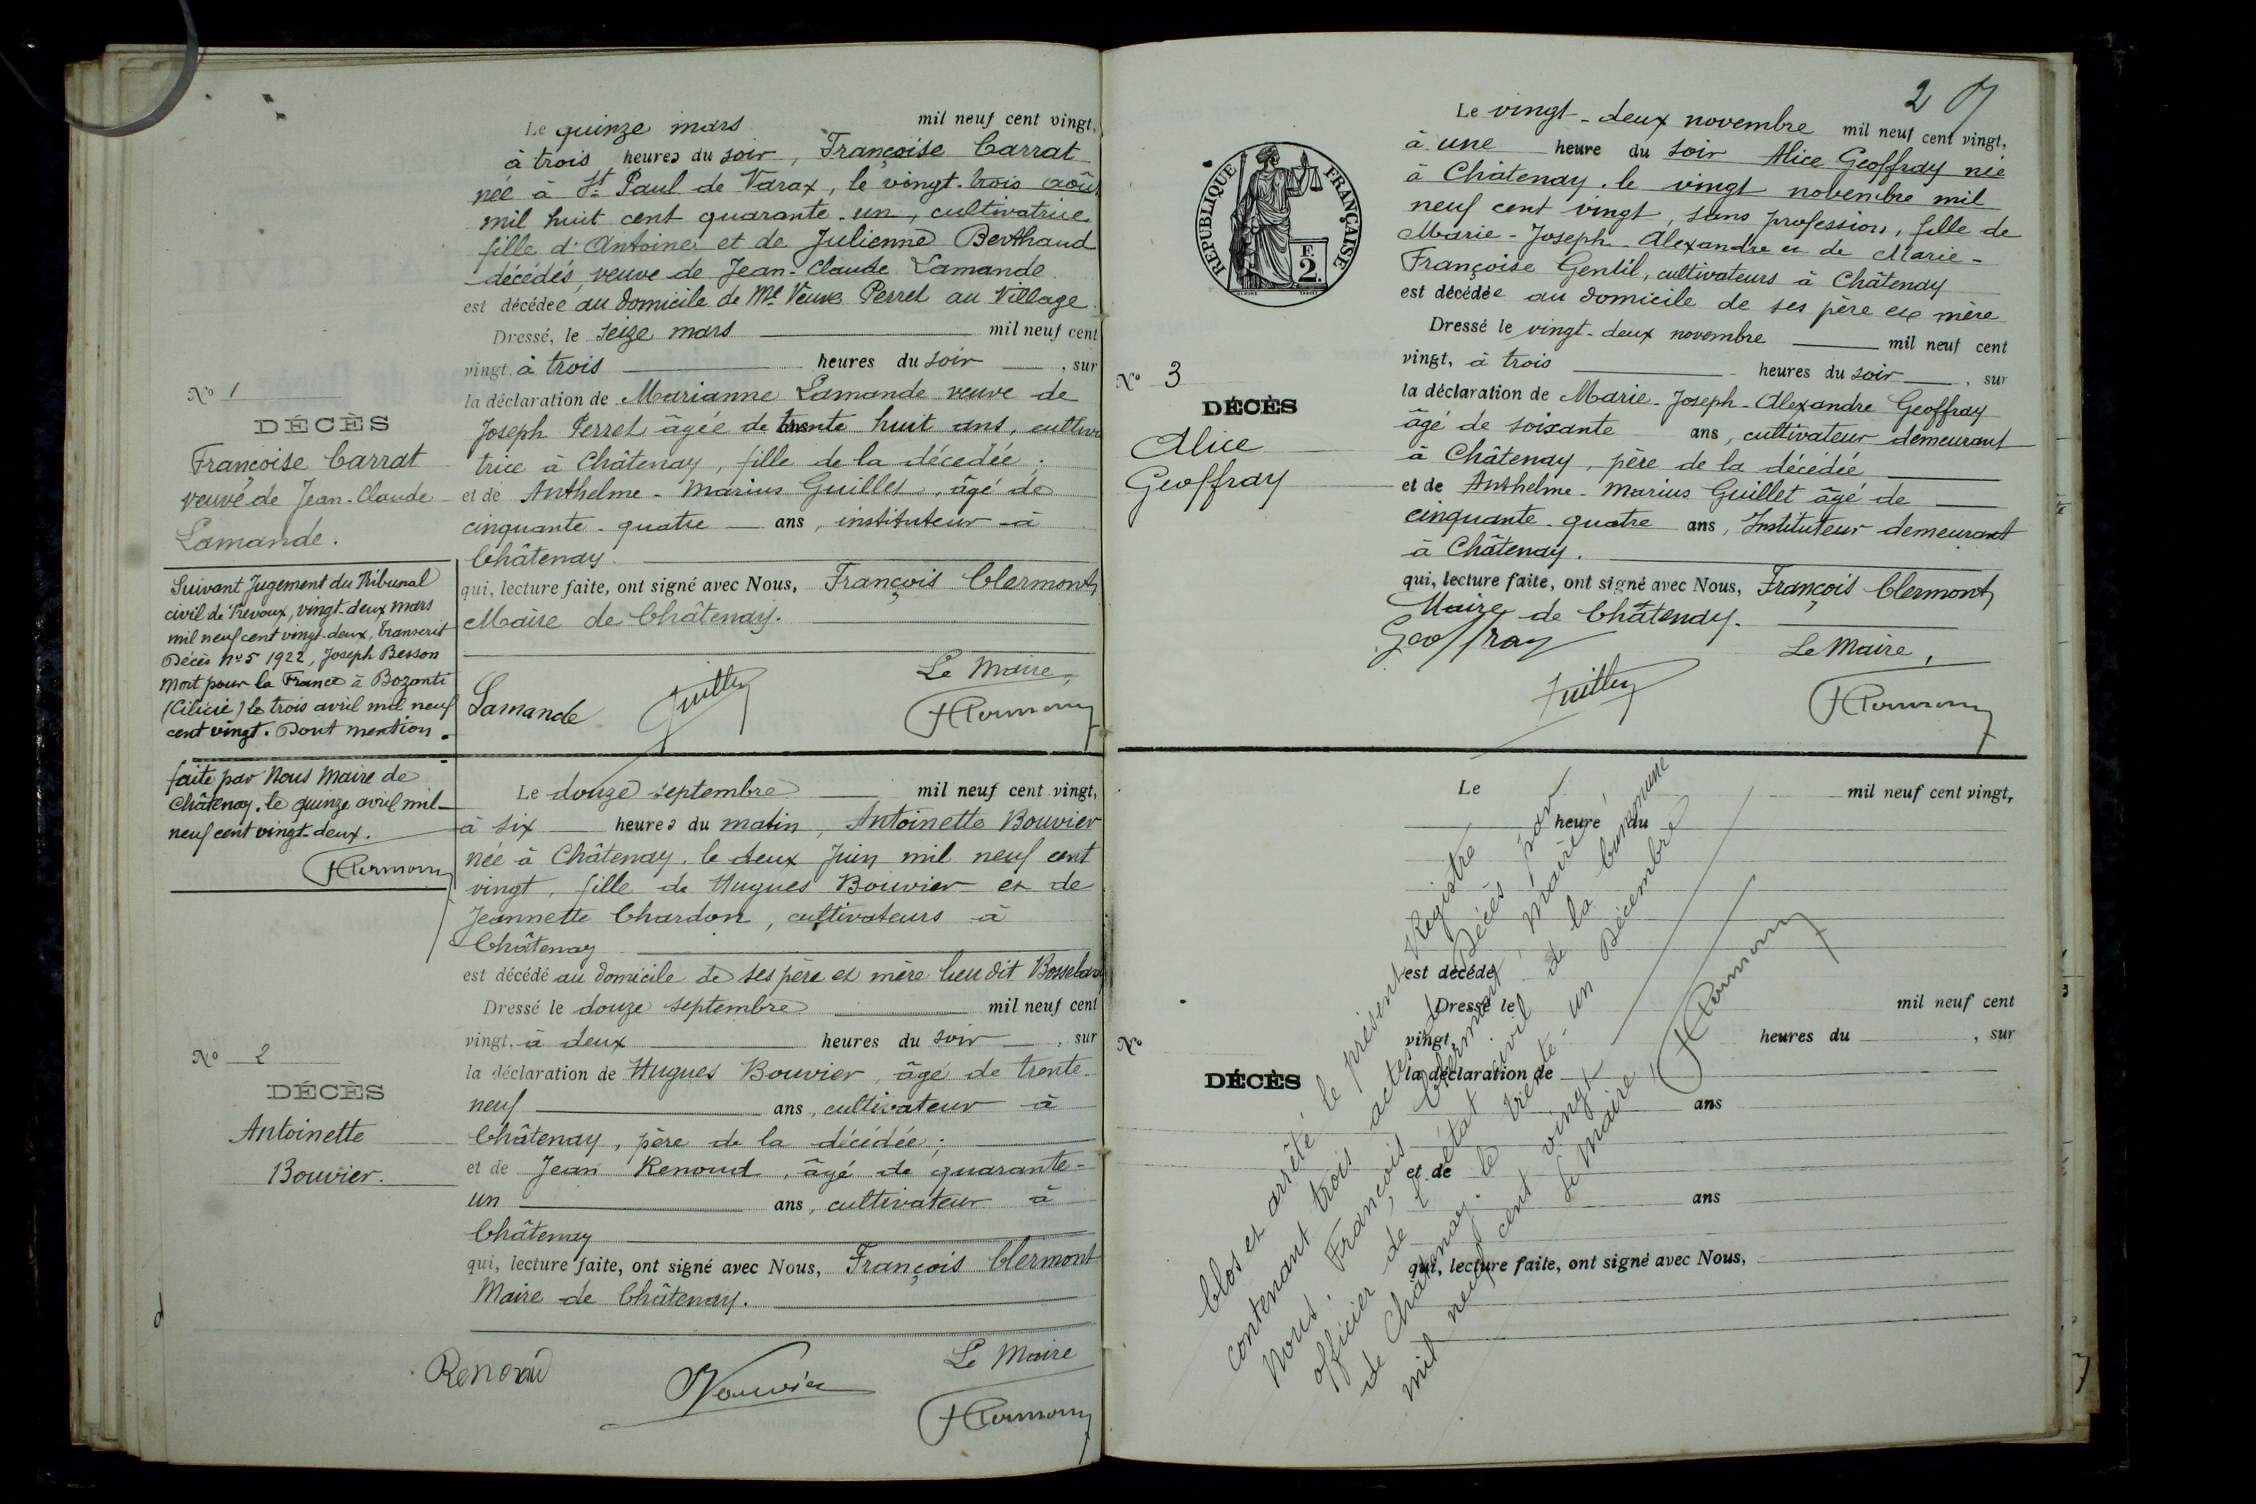 Le quinze mars mil neuf cent vingt,
à trois heures du soir, Françoise Carrat
née à St Paul de Varax, le vingt-trois août
mil huit cent quarante-un, cultivatrice
fille d'Antoine et de Julienne Berthaud
décédés, veuve de Jean-Claude Lamande.
est décédée au domicile de Me Veuve Perret au Village.
Dressé, le seize mars mil neuf cent
vingt, à trois heures du soir, sur
la déclaration de Marianne Lamande veuve de
Joseph Perret âgée de trente huit ans, cultiva
trice à Châtenay, fille de la décédée;
et de Anthelme-Marius Guillet, âgé de
cinquante-quatre ans, instituteur à
Châtenay
qui, lecture faite, ont signé avec Nous, François Clermont,
Maire de Châtenay.
Le Maire,
Lamande Guillet FClermont
No 1
DÉCÈS
Françoise Carrat
veuve de Jean-Claude
Lamande.
Suivant Jugement du Tribunal
civil de Trévoux, vingt-deux mars
mil neuf cent vingt-deux, transcrit
Décès No 5 1922, Joseph Besson
Mort pour la France à Bozanti
(Cilicie) le trois avril mil neuf
cent vingt. Dont mention.
faite par Nous Maire de
Châtenay, le quinze avril mil
neuf cent vingt-deux.
FClermont
Le douze septembre mil neuf cent vingt,
à six heures du matin, Antoinette Bouvier
née à Châtenay, le deux Juin mil neuf cent
vingt, fille de Hugues Bouvier et de
Jeannette Chardon, cultivateurs à
Châtenay
est décédé au domicile de ses père et mère lieu dit
Dressé le douze septembre mil neuf cent
vingt, à deux heures du soir, sur
la déclaration de Hugues Bouvier, âgé de trente-
neuf ans, cultivateur à
Châtenay, père de la décédée;
et de Jean Renoud, âgé de quarante-
un ans, cultivateur à
Châtenay
qui, lecture faite, ont signé avec Nous, François Clermont
Maire de Châtenay.
Le Maire
Renoud Bouvier FClermont
No 2
DÉCÈS
Antoinette
Bouvier.
2
RÉPUBLIQUE FRANÇAISE
F.
2.
Le vingt-deux novembre mil neuf cent vingt,
à une heure du soir Alice Geoffray née
à Châtenay, le vingt novembre mil
neuf cent vingt, sans profession, fille de
Marie-Joseph-Alexandre et de Marie-
Françoise Gentil, cultivateurs à Châtenay
est décédée au domicile de ses père et mère
Dressé le vingt-deux novembre mil neuf cent
vingt, à trois heures du soir, sur
la déclaration de Marie-Joseph-Alexandre Geoffray
âgé de soixante ans, cultivateur demeurant
à Châtenay, père de la décédée
et de Anthelme-Marius Guillet âgé de
cinquante-quatre ans, Instituteur demeurant
à Châtenay.
qui, lecture faite, ont signé avec Nous, François Clermont,
Maire de Châtenay.
Le Maire,
Geoffray Guillet FClermont
No 3
DÉCÈS
Alice
Geoffray
Le mil neuf cent vingt,
heure du
est décédé
Dressé le mil neuf cent
vingt, heures du , sur
la déclaration de
ans
et de
ans
qui, lecture faite, ont signé avec Nous,
No
DÉCÈS
Clos et arrêté le présent Registre
contenant trois actes de Décès par
Nous, François Clermont, Maire,
officier de l'état civil de la Commune
de Châtenay, le trente-un Décembre
mil neuf cent vingt
Le Maire
FClermont